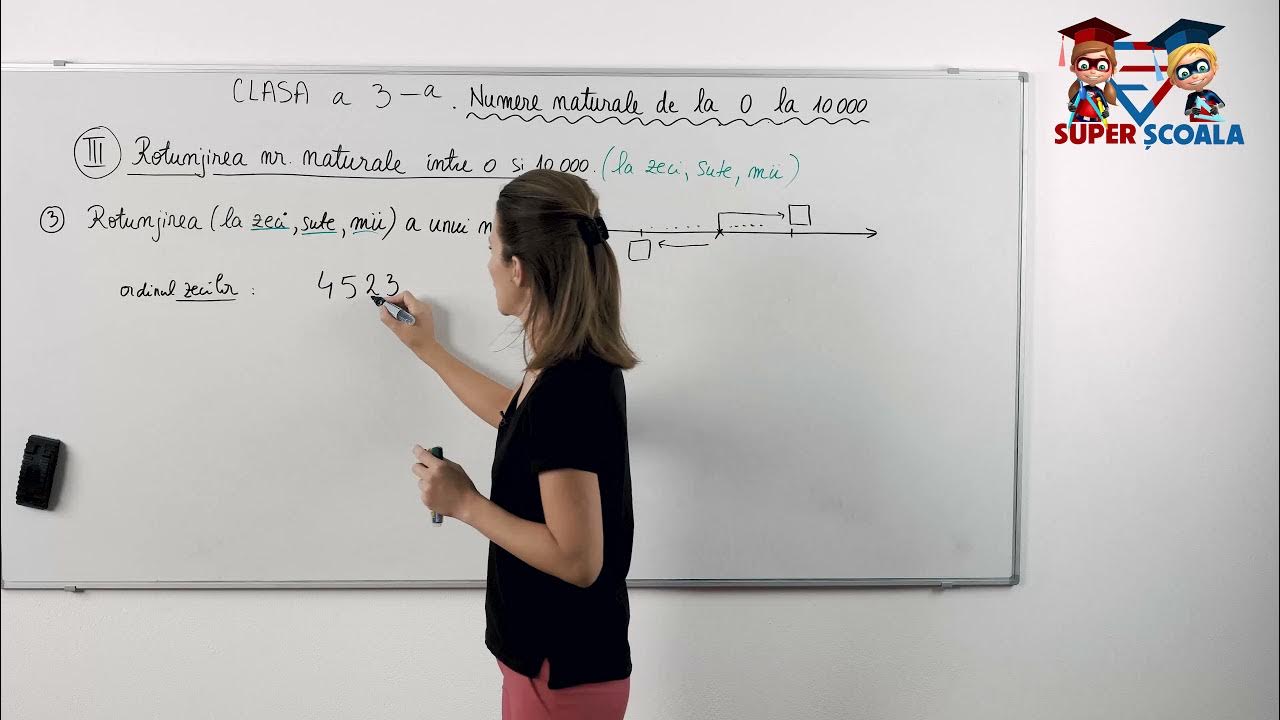 CLASA a 3-a. Numere naturale de la 0 la 10 000
III Rotunjirea nr. naturale între 0 si 10.000. (la zeci, sute, mii)
3 Rotunjirea (la zeci, sute, mii) a unui n
ordinul zecilor : 4523
SUPER ȘCOALA